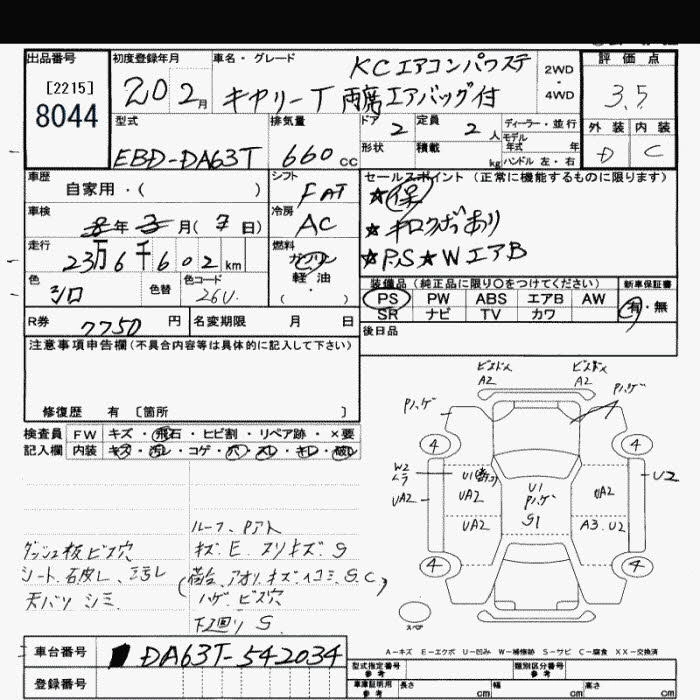 出品番号
[2215]
8044
初度登録年月
20 2月
車名・グレード
KCエアコンパワステ
キャリーT 両席エアバッグ付
2WD
・
4WD
評価点
3.5
外装 内装
D C
型式
EBD-DA63T
排気量
660cc
ドア 2
定員 2人
形状
積載 kg
ディーラー・並行
モデル年式 年
ハンドル 左・右
車歴
自家用・( )
シフト
FAT
セールスポイント (正常に機能するものに限ります)
★保
★キロクボあり
★P.S★WエアB
車検
8年3月(7日)
冷房
AC
走行
23万6千602km
燃料
ガソリン
軽油
・
( )
色
シロ
色替
色コード
26U
装備品 (純正品に限り〇をつけてください)
新車保証書
PS PW ABS エアB AW
有・無
SR ナビ TV カワ
R券
7750円
名変期限 月 日
後日品
注意事項申告欄(不具合内容等は具体的に記入して下さい)
修復歴 有 [箇所 ]
検査員 FW キズ・飛石・ヒビ割・リペア跡・×要
記入欄 内装 キズ・汚レ・コゲ・穴・スレ・キレ・破レ
A2
A2
Pハゲ
Pハゲ
4
4
W2
ムラ
U1
U2
UA2
UA2
U1
Pハゲ
S1
UA2
UA2
A3.U2
4
4
スペア
ルーフ、Pアト
ダッシュ板ビス穴
キズ.E.スリキズ S
シート.石皮レ、
(荷台、アオリ.キズ.ヘコミ.S.C)
天バリ シミ
ハゲ.ビス穴
下廻り S
A-キズ E-エクボ U-凹み W-補修跡 S-サビ C-腐食 XX-交換済
車台番号
DA63T-542034
型式指定番号
参考
類別区分番号
参考
登録番号
車庫証明用
参考
長さ cm
幅 cm
高さ cm